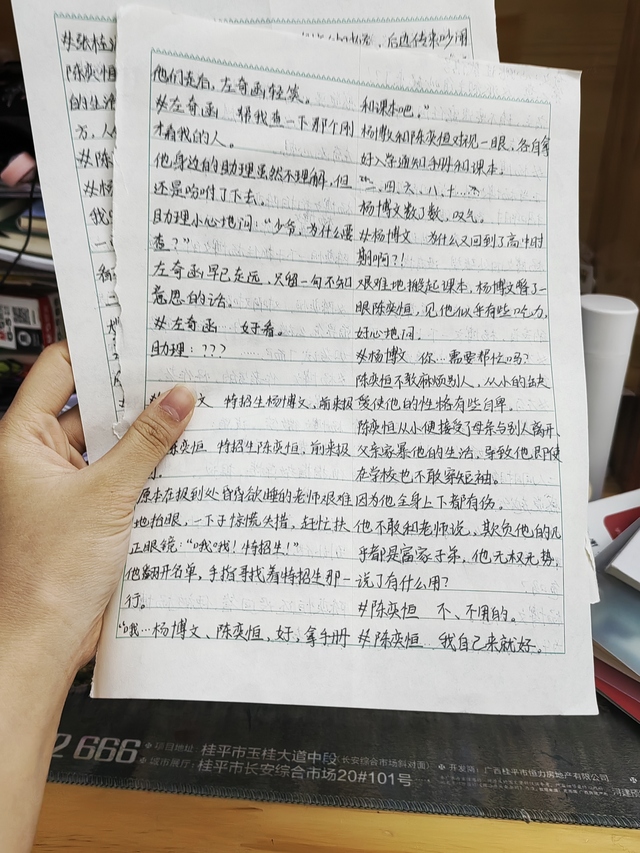 后边传来吵闹
#张桂
陈奕恒
的生活
方，人
#陈
#杨
我
一
他们走后，左奇函轻笑。
#左奇函 帮我查一下那个刚
才看我的人。
他身边的助理虽然不理解，但
还是吩咐了下去。
助理小心地问：“少爷，为什么要
查？”
左奇函早已走远，只留一句不知
意思的话。
#左奇函 好看。
助理：???
文 特招生杨博文，前来报
陈奕恒 特招生陈奕恒，前来报
原本在报到处昏昏欲睡的老师艰难
地抬眼，一下子惊慌失措，赶忙扶
正眼镜：“哦哦！特招生！”
他翻开名单，手指寻找着特招生那一
行。
“哦…杨博文、陈奕恒，好，拿手册
和课本吧。”
杨博文和陈奕恒对视一眼，各自拿
好入学通知手册和课本。
二、四、六、八、十……
杨博文数了数，叹气。
#杨博文 为什么又回到了高中时
期啊？！
艰难地搬起课本，杨博文瞥了一
眼陈奕恒，见他似乎有些吃力，
好心地问。
#杨博文 你…需要帮忙吗？
陈奕恒不敢麻烦别人，从小的缺
爱使他的性格有些自卑。
陈奕恒从小便接受了母亲与别人离开、
父亲家暴他的生活，导致他，即使
在学校也不敢穿短袖。
因为他全身上下都有伤。
他不敢和老师说，欺负他的几
乎都是富家子弟，他无权无势，
说了有什么用？
#陈奕恒 不、不用的。
#陈奕恒 我自己来就好。
2 666
项目地址：桂平市玉桂大道中段(长安综合市场斜对面)
城市展厅：桂平市长安综合市场20#101号
开发商：广西桂平市恒力房地产有限公司